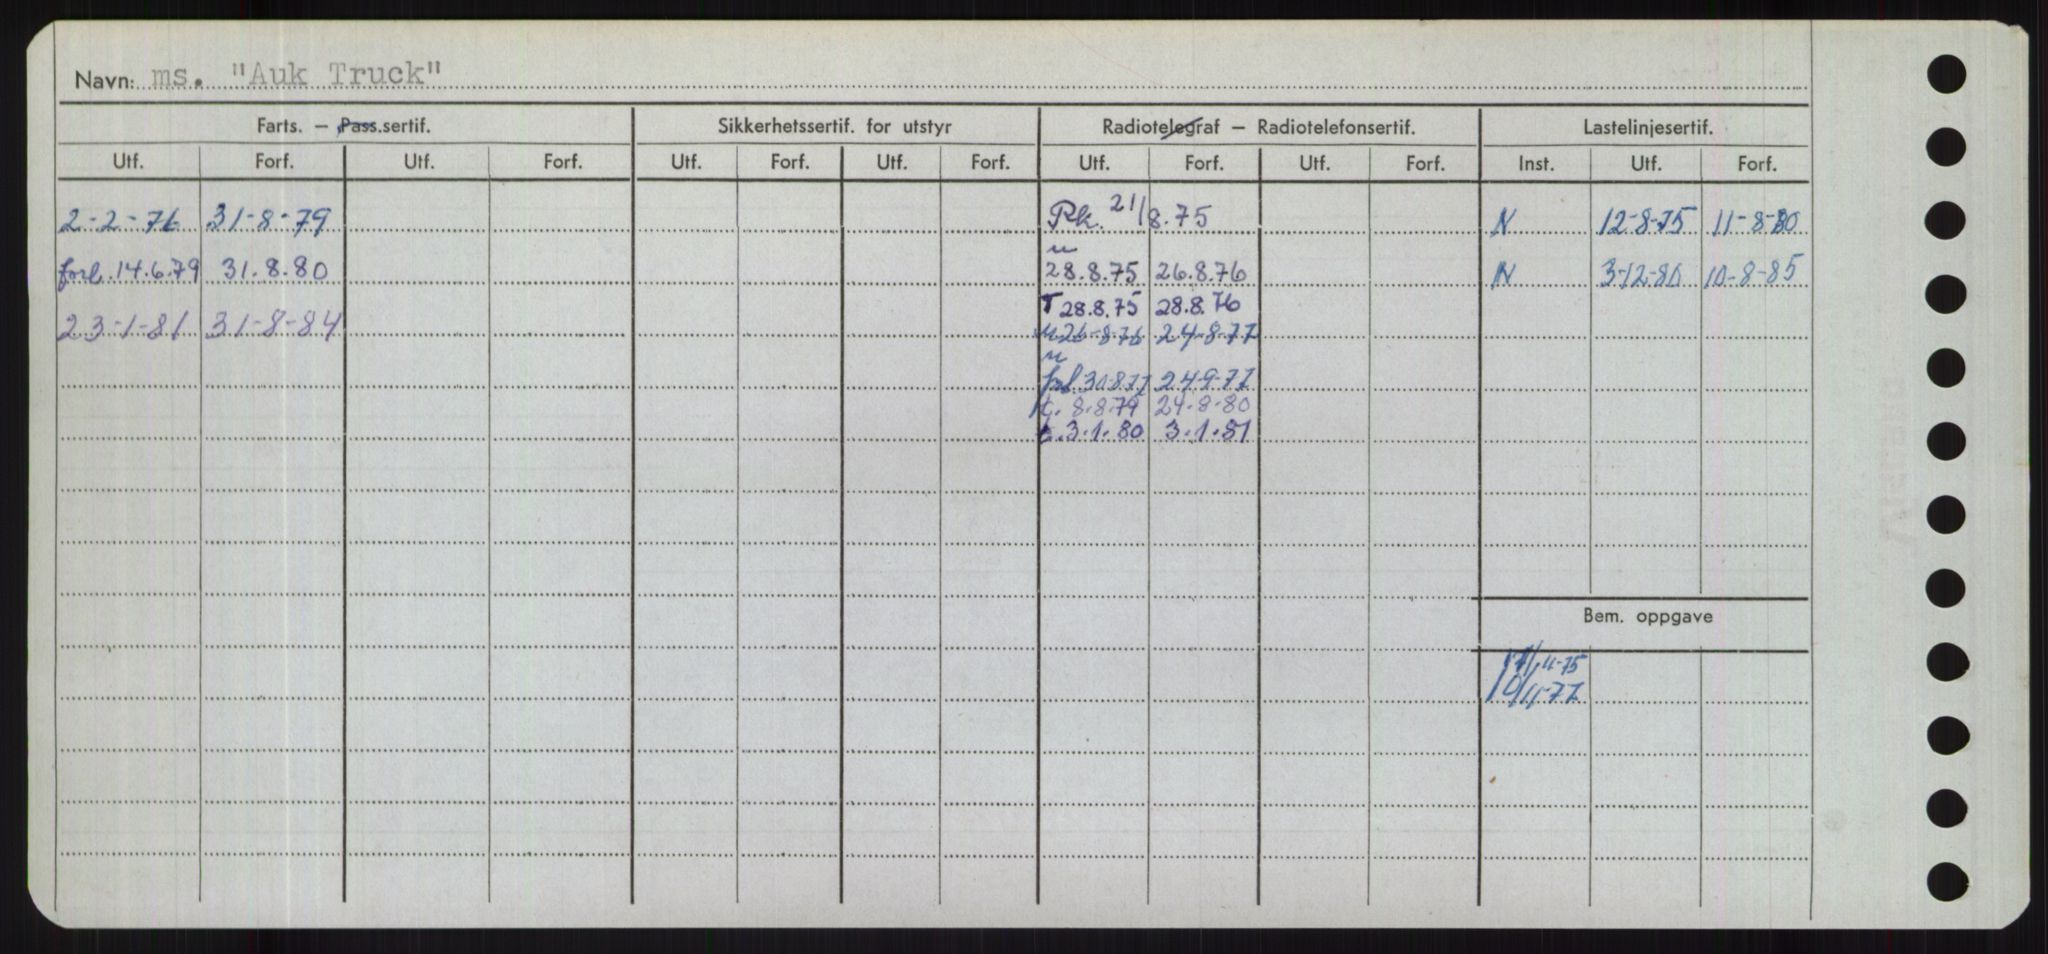 Navn: ms. "Auk Truck"
Farts. — Pass.sertif. Sikkerhetssertif. for utstyr Radiotelegraf — Radiotelefonsertif. Lastelinjesertif.
Utf. Forf. Utf. Forf. Utf. Forf. Utf. Forf. Utf. Forf. Utf. Forf. Inst. Utf. Forf.
2-2-76 31-8-79 Pk. 21/8.75 N 12-8-75 11-8-80
"
forl. 14.6.79 31.8.80 28.8.75 26.8.76 N 3-12-80 10-8-85
T 28.8.75 28.8.76
23-1-81 31-8-84 26-8-76 24-8-77
"
forl. 30-8-77 24-9-77
t. 8.8.79 24-8-80
t. 3.1.80 3.1.81
Bem. oppgave
17/4-75
10/11-77